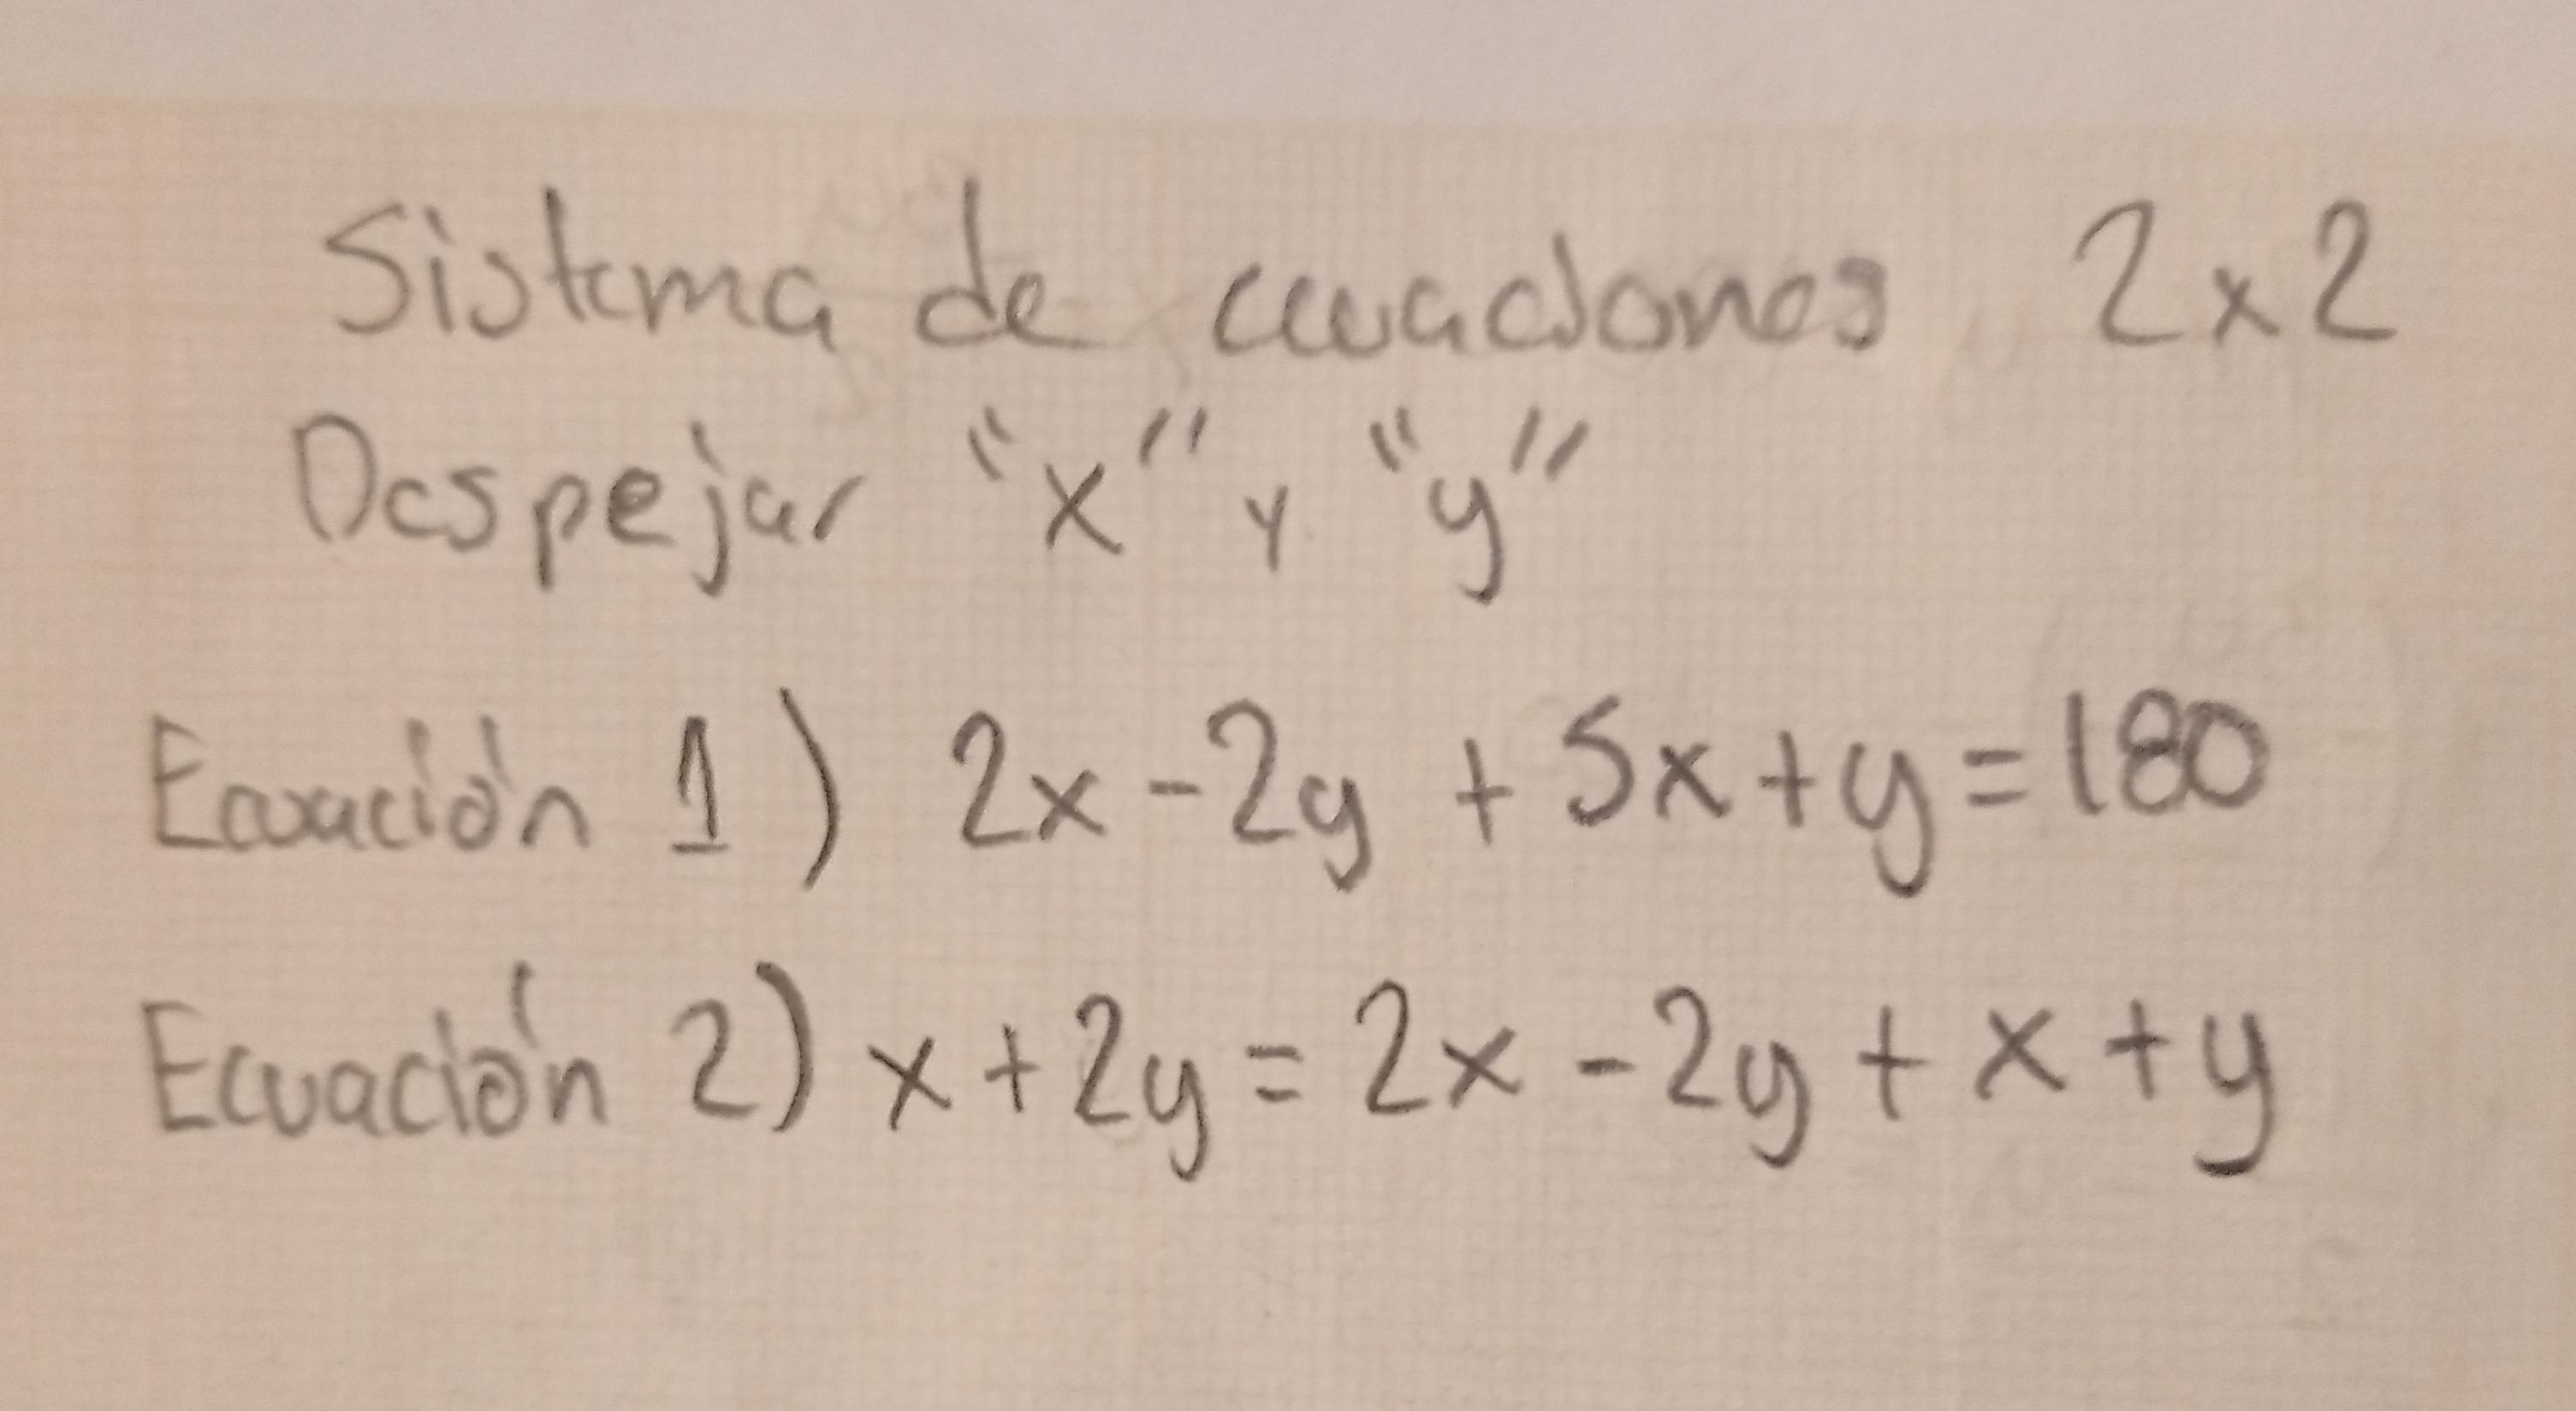 Sistema de ecuaciones 2x2
Despejar "x" y "y"
Ecuación 1) 2x - 2y + 5x + y = 180
Ecuación 2) x + 2y = 2x - 2y + x + y